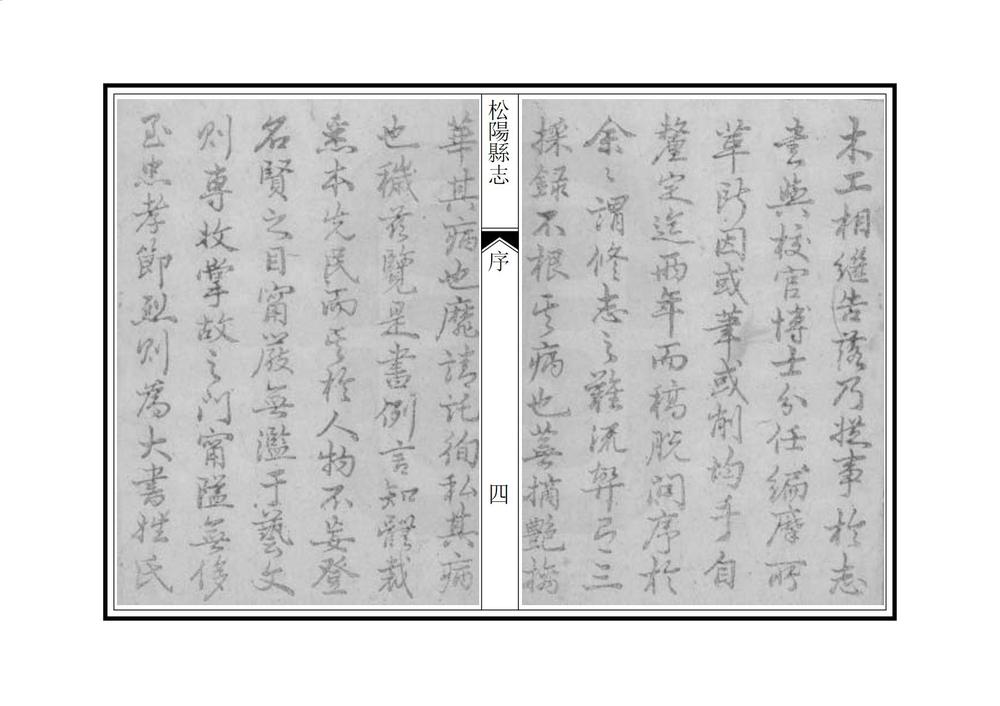 木工相繼告落乃從事於志
書與校官博士分任編摩所
草所因或筆或削均手自
釐定迄兩年而稿脫問序於
余余謂修志之難流弊有三
採錄不根其病也蕪摘艷摛
松陽縣志
序
四
華其病也靡請託徇私其病
也穢茲覽是書例言知體裁
悉本先民而其於人物不妄登
名賢之目甯嚴無濫于藝文
則專收掌故之門甯隘無侈
至忠孝節烈則為大書姓氏